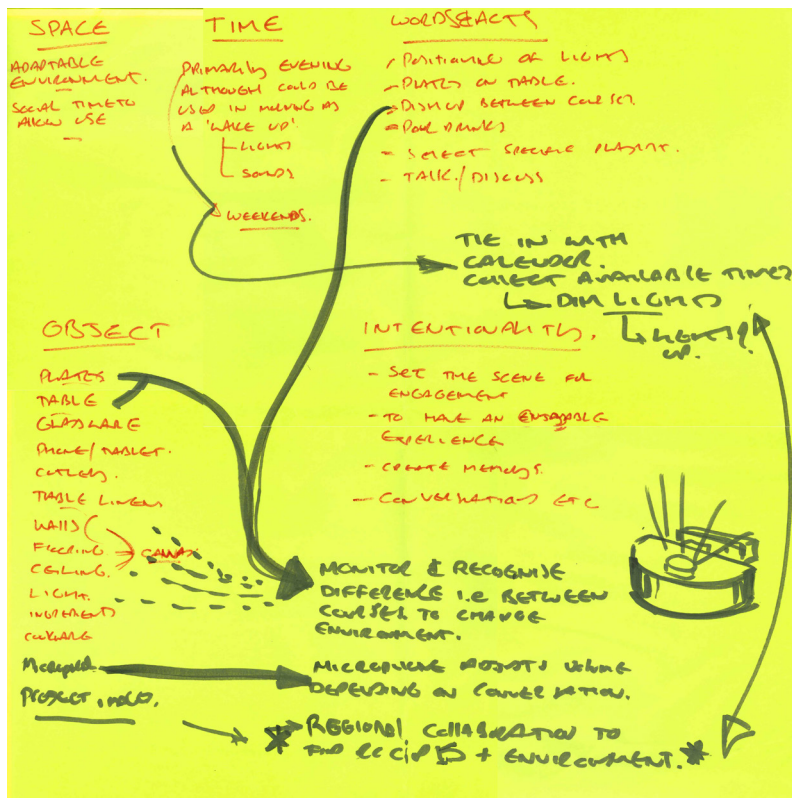 SPACE
ADAPTABLE
ENVIRONMENT.
SOCIAL TIME TO
ALLOW USE
TIME
PRIMARILY EVENING
ALTHOUGH COULD BE
USED IN MORNING AS
A 'WAKE UP'
LIGHTS
SOUNDS
WEEKENDS.
WORDS & ACTS
POSITIONING OF LIGHTS
- PLATES ON TABLE.
- DISH UP BETWEEN COURSES.
- POUR DRINKS
- SELECT SPECIFIC PLAYLIST.
- TALK / DISCUSS
TIE IN WITH
CALENDER.
COLLECT AVAILABLE TIMES
DIM LIGHTS
LIGHTS
UP.
OBJECT
PLATES
TABLE
GLASSWARE
PHONE / TABLET.
CUTLERY.
TABLE LINEN
WALLS
FLOORING
CEILING.
CANVAS
LIGHT.
INGREDIENTS
COOKWARE
PROJECT
INTENTIONALITY.
- SET THE SCENE FOR
ENGAGEMENT
- TO HAVE AN ENJOYABLE
EXPERIENCE
- CREATE MEMORYS.
- CONVERSATIONS ETC
MONITOR & RECOGNISE
DIFFERENCE i.e BETWEEN
COURSES TO CHANGE
ENVIRONMENT.
MICROPHONE ADJUSTS VOLUME
DEPENDING ON CONVERSATION.
REGIONAL COLLABORATION TO
FIND RECIPES + ENVIRONMENT.